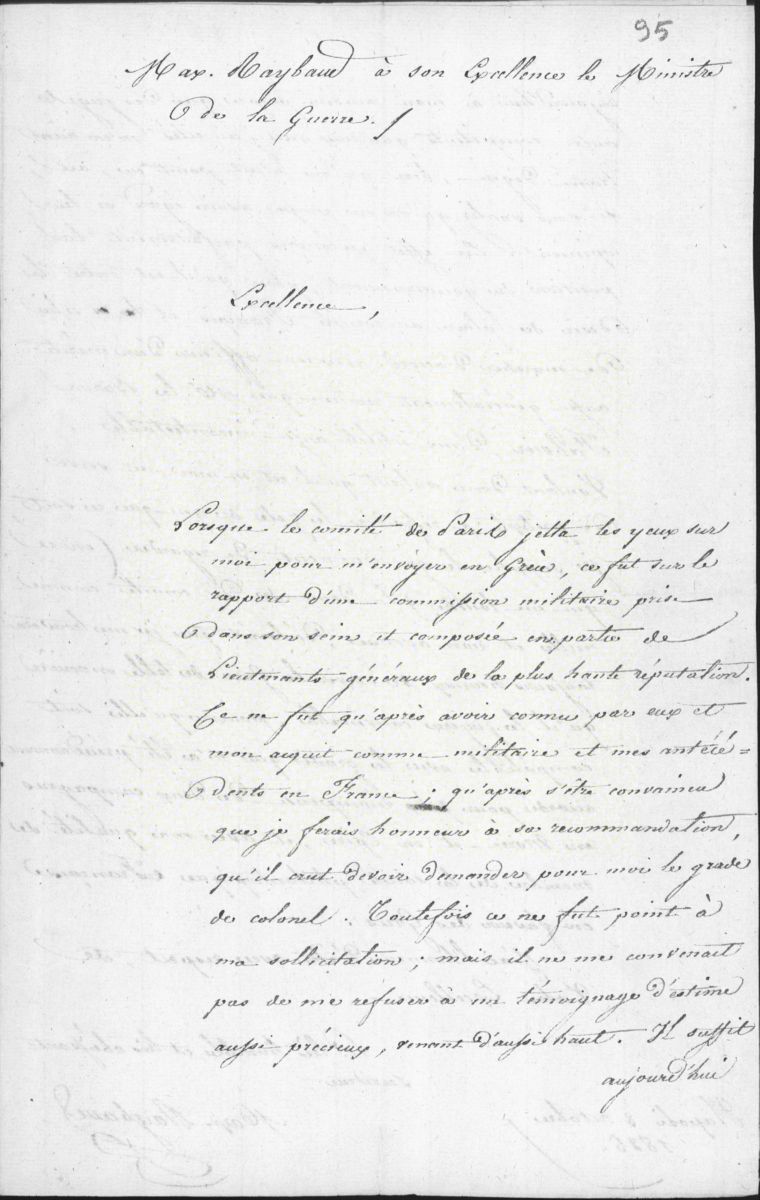 95
Max. Raybaud à son Excellence le Ministre
de la Guerre. /
Excellence,
Lorsque le comité de Paris jetta les yeux sur
moi pour m'envoyer en Grèce, ce fut sur le
rapport d'une commission militaire prise
dans son sein et composée en partie de
Lieutenants généraux de la plus haute réputation.
Ce ne fut qu'après avoir connu par eux et
mon acquit comme militaire et mes antécé=
dents en France ; qu'après s'être convaincu
que je ferais honneur à sa recommandation,
qu'il crut devoir demander pour moi le grade
de colonel. Toutefois ce ne fut point à
ma sollicitation ; mais il ne me convenait
pas de me refuser à un témoignage d'estime
aussi précieux, venant d'aussi haut. Il suffit
aujourd'hui